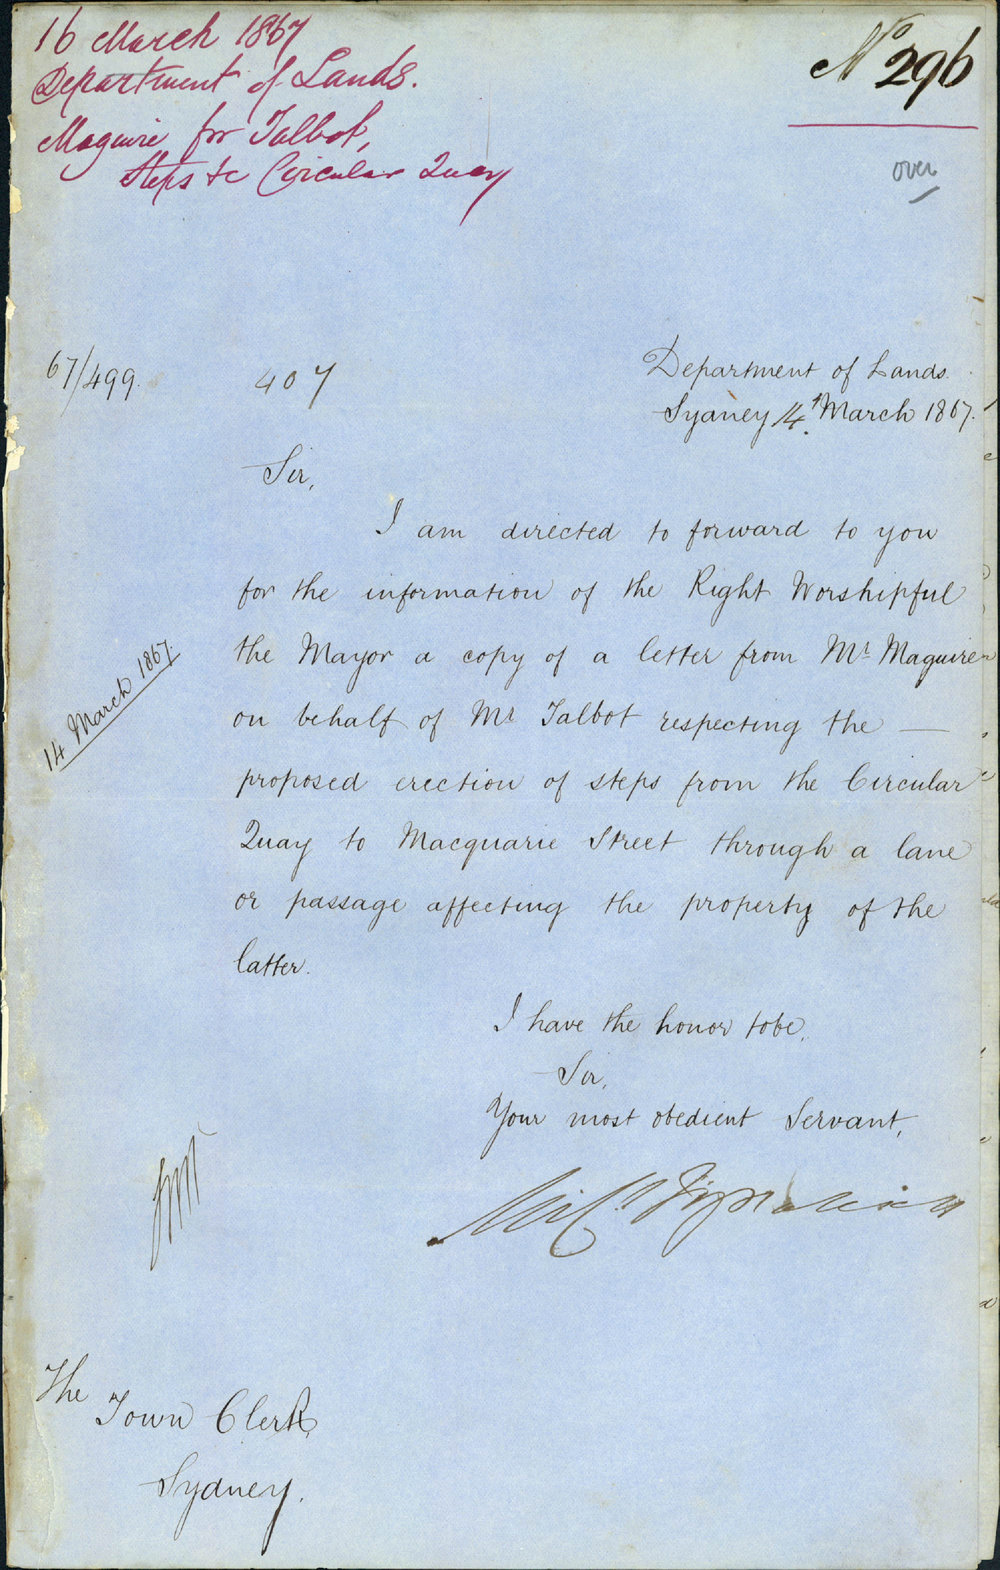 16 March 1867
Department of Lands.
Maguire for Talbot,
Steps &c Circular Quay
No 296
over
67/499.
407
Department of Lands.
Sydney 14th March 1867.
Sir,
I am directed to forward to you
for the information of the Right Worshipful
the Mayor a copy of a letter from Mr Maguire
on behalf of Mr Talbot respecting the —
proposed erection of steps from the Circular
Quay to Macquarie Street through a lane
or passage affecting the property of the
latter.
14 March 1867.
I have the honor to be,
Sir,
Your most obedient Servant,
Mich Fitzpatrick
The
Town Clerk,
Sydney.